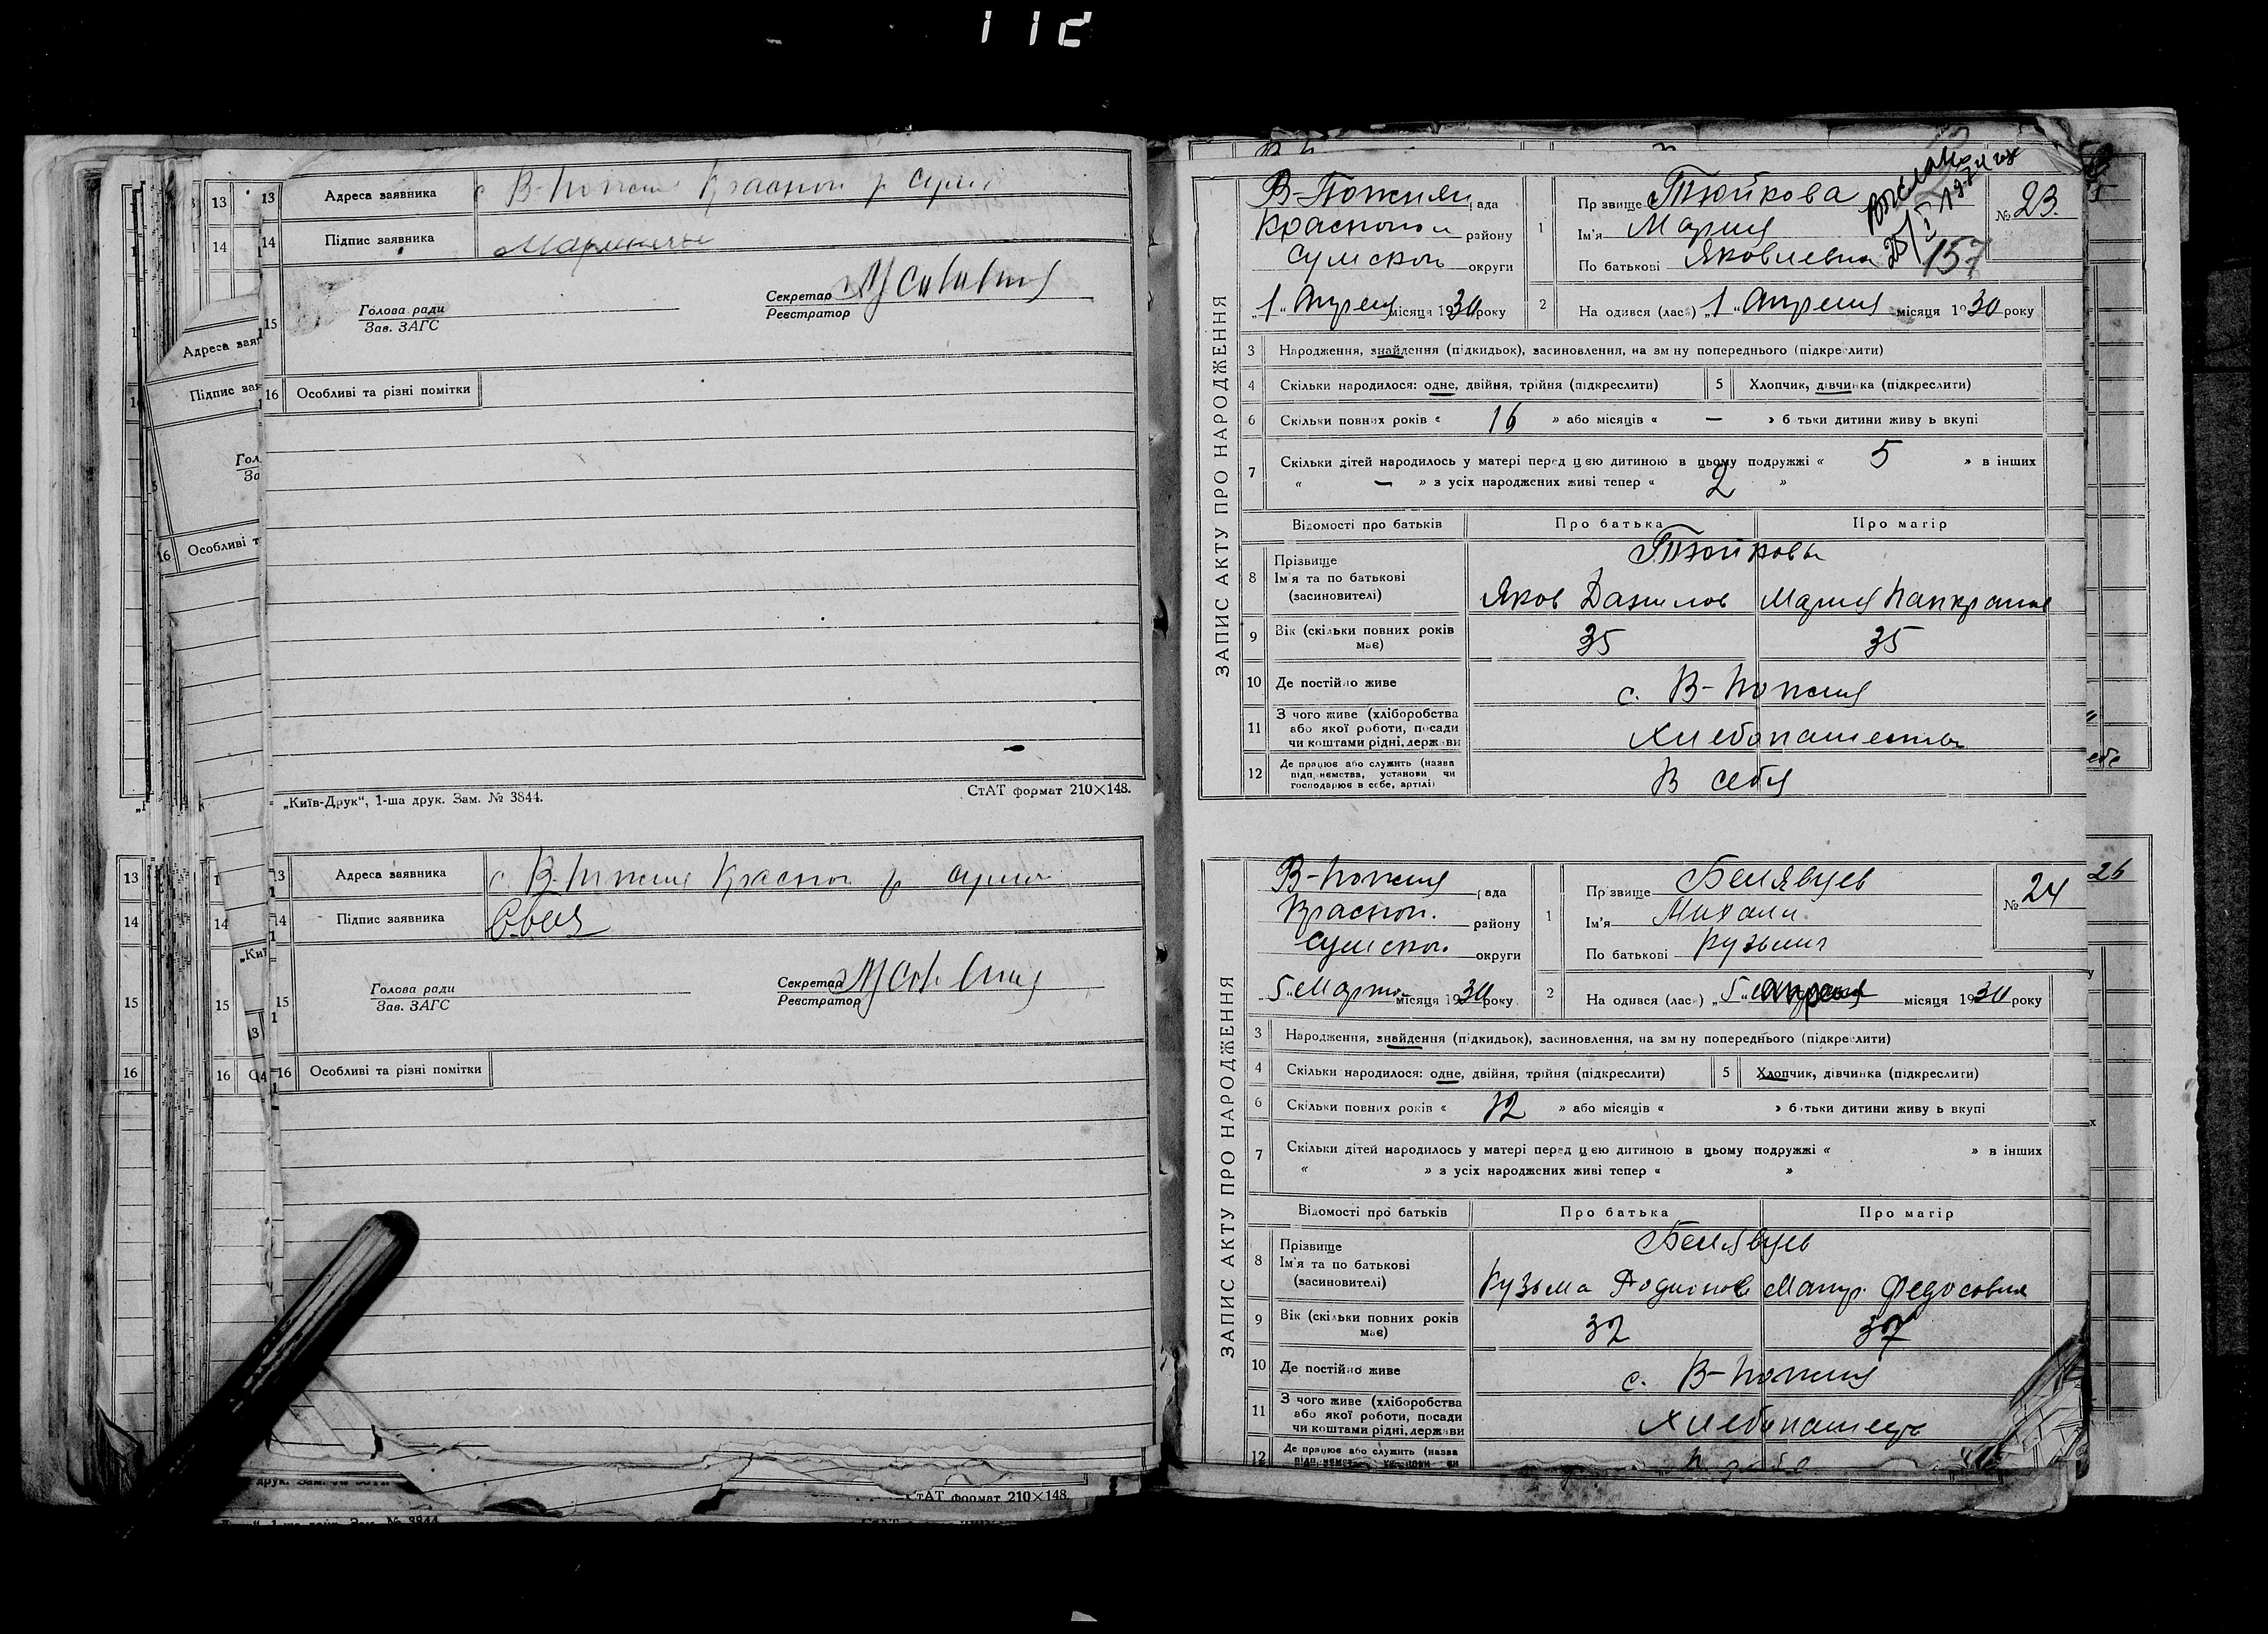 13 Адреса заявника с. В-Пожня Краснон р Сумск
14 Підпис заявника
15 Голова ради
Зав. ЗАГС
Секретар
Реєстратор
16 Особливі та різні помітки
„Київ-Друк“, 1-ша друк. Зам. № 3844.
СтАТ формат 210×148.
13 Адреса заявника с. В-Пожня Краснон р Сумск
14 Підпис заявника
15 Голова ради
Зав. ЗАГС
Секретар
Реєстратор
16 Особливі та різні помітки
ЗАПИС АКТУ ПРО НАРОДЖЕННЯ
В-Пожнян рада
Краснопол району
Сумской округи
„1“ Апреля місяця 1930 року
1 Прізвище Тюйкова
Ім'я Мария
По батькові Яковлевна
№ 23.
Выслано
157
2 На одився (лась) „1“ Апреля місяця 1930 року
3 Народження, знайдення (підкидьок), засиновлення, на зм ну попереднього (підкреслити)
4 Скільки народилося: одне, двійня, трійня (підкреслити) 5 Хлопчик, дівчинка (підкреслити)
6 Скільки повних років « 16 » або місяців « — » б тьки дитини живу ь вкупі
7 Скільки дітей народилось у матері перед цією дитиною в цьому подружжі « 5 » в інших
« — » з усіх народжених живі тепер « 2 »
Відомості про батьків Про батька Про матір
8 Прізвище Тюйковы
Ім'я та по батькові
(засиновителі) Яков Данилов Мария Панкратов
9 Вік (скільки повних років має) 35 35
10 Де постійно живе с. В-Пожня
11 З чого живе (хліборобства
або якої роботи, посади
чи коштами рідні, держави Хлебопашества
12 Де працює або служить (назва
підприємства, установи чи
господарює в себе, артілі) В себя
ЗАПИС АКТУ ПРО НАРОДЖЕННЯ
В-Пожня рада
Краснон. району
Сумской. округи
„5“ Марта місяця 1930 року
1 Прізвище Белявцев
Ім'я Михаил
По батькові Кузьмич
№ 24
2 На одився (лась) „5“ місяця 1930 року
3 Народження, знайдення (підкидьок), засиновлення, на зм ну попереднього (підкреслити)
4 Скільки народилося: одне, двійня, трійня (підкреслити) 5 Хлопчик, дівчинка (підкреслити)
6 Скільки повних років « 12 » або місяців « » батьки дитини живу ь вкупі
7 Скільки дітей народилось у матері перед цією дитиною в цьому подружжі « » в інших
« » з усіх народжених живі тепер « »
Відомості про батьків Про батька Про матір
8 Прізвище Белявцев
Ім'я та по батькові
(засиновителі) Кузьма Родионов Федосовна
9 Вік (скільки повних років має) 32 37
10 Де постійно живе с. В-Пожня
11 З чого живе (хліборобства
або якої роботи, посади
чи коштами рідні, держави Хлебопашец
12 Де працює або служить (назва
26